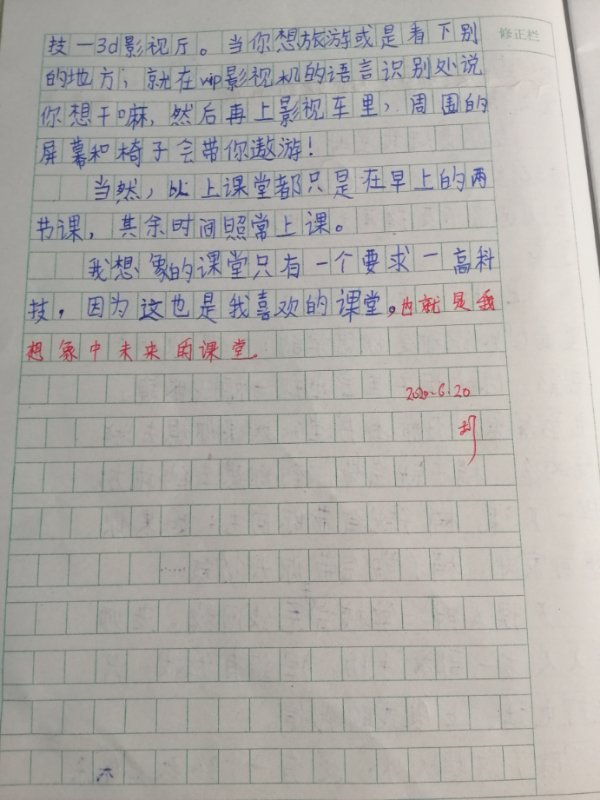 修正栏
技一3d影视厅。当你想旅游或是看下别
的地方，就在vip影视机的语言识别处说
你想干嘛，然后再上影视车里，周围的
屏幕和椅子会带你遨游！
当然，以上课堂都只是在早上的两
节课，其余时间照常上课。
我想象的课堂只有一个要求一高科
技，因为这也是我喜欢的课堂。也就是我
想象中未来的课堂。
2020.6.20